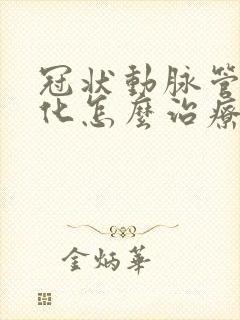 冠状動脉管
化怎麼治療
金炳華